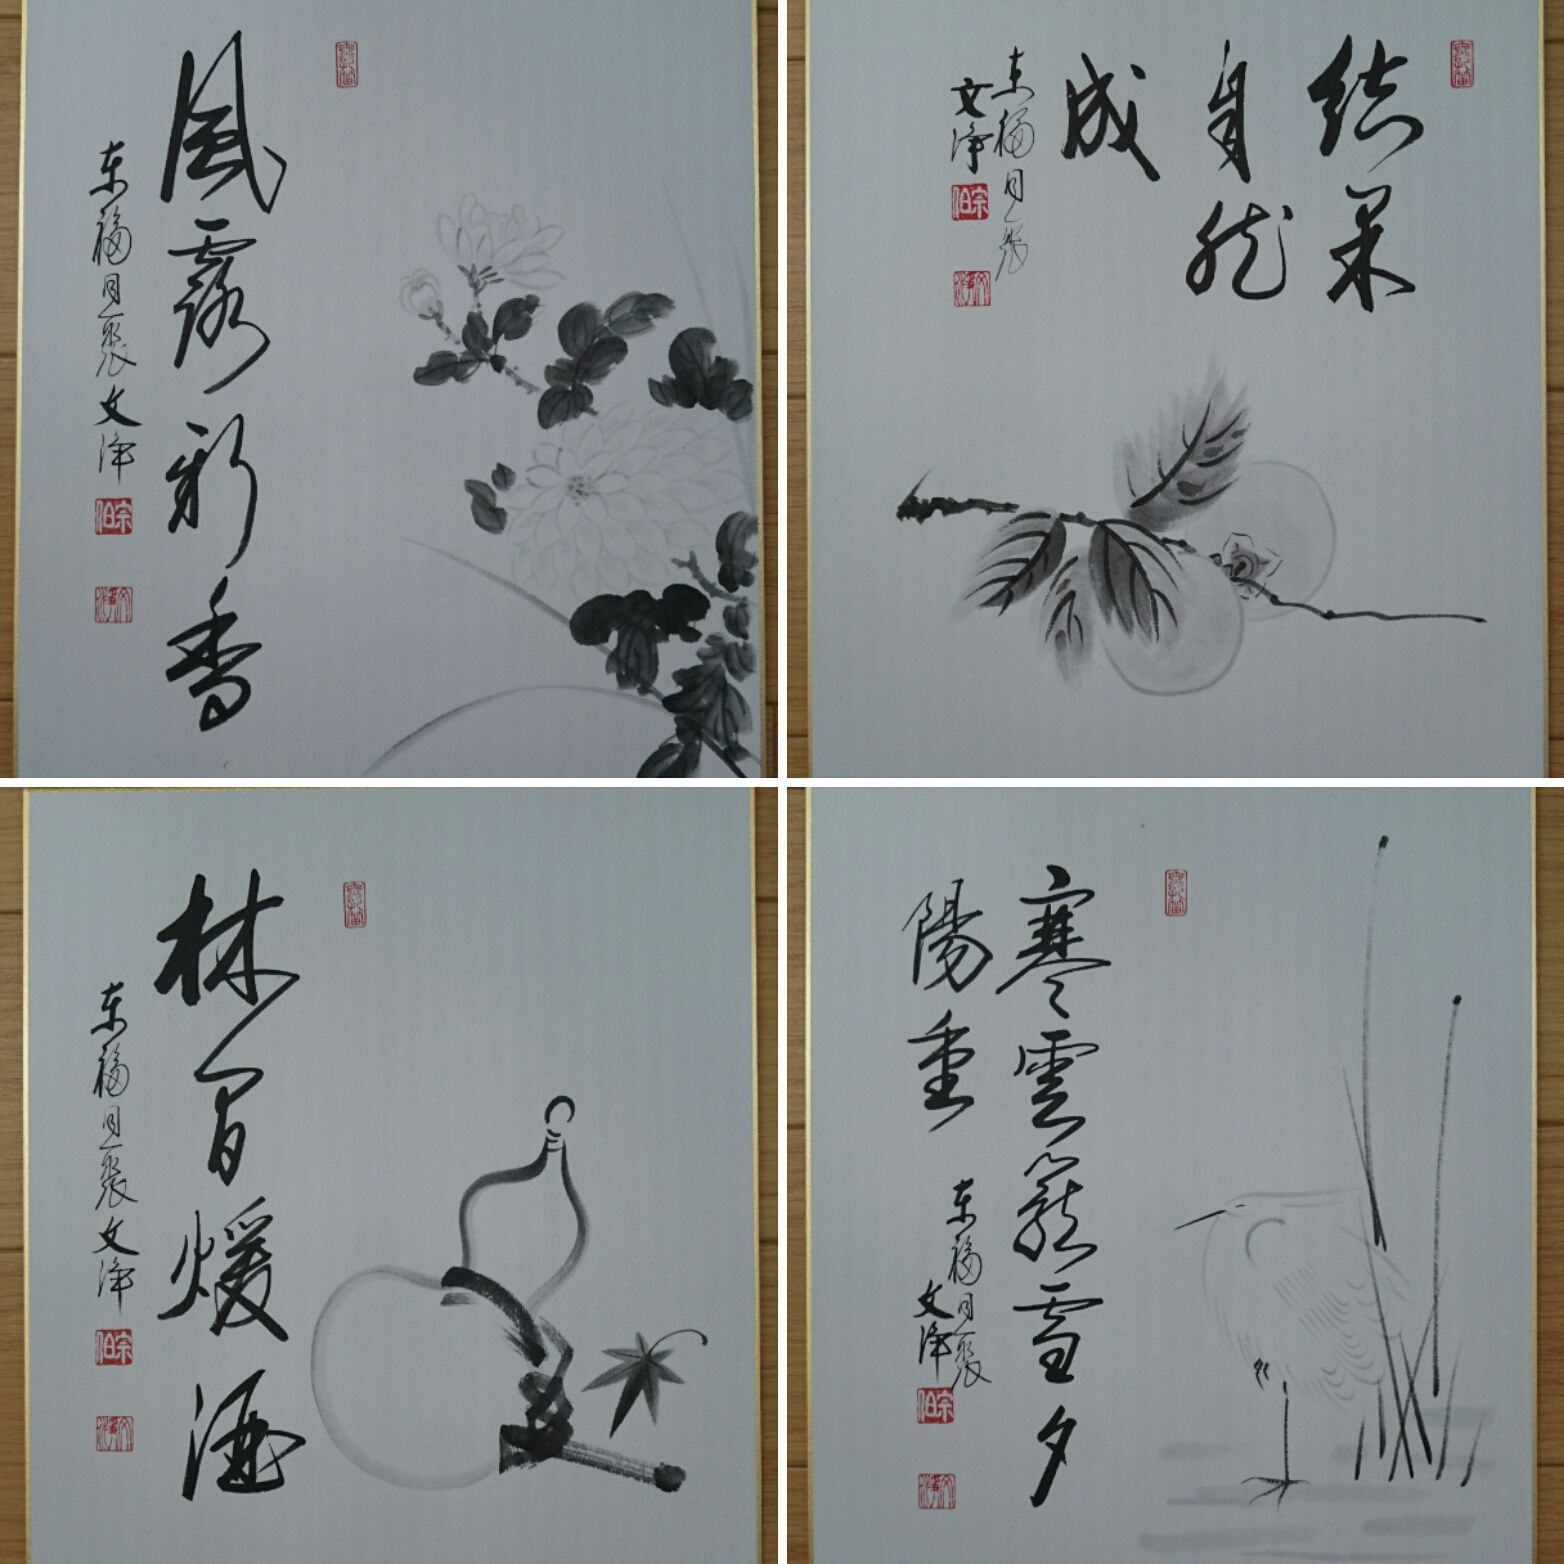 風露新香
東福同聚文浄
結果
自然
成
東福同聚
文浄
林間煖酒
東福同聚文浄
寒雲籠雪夕
陽重
東福同聚
文浄